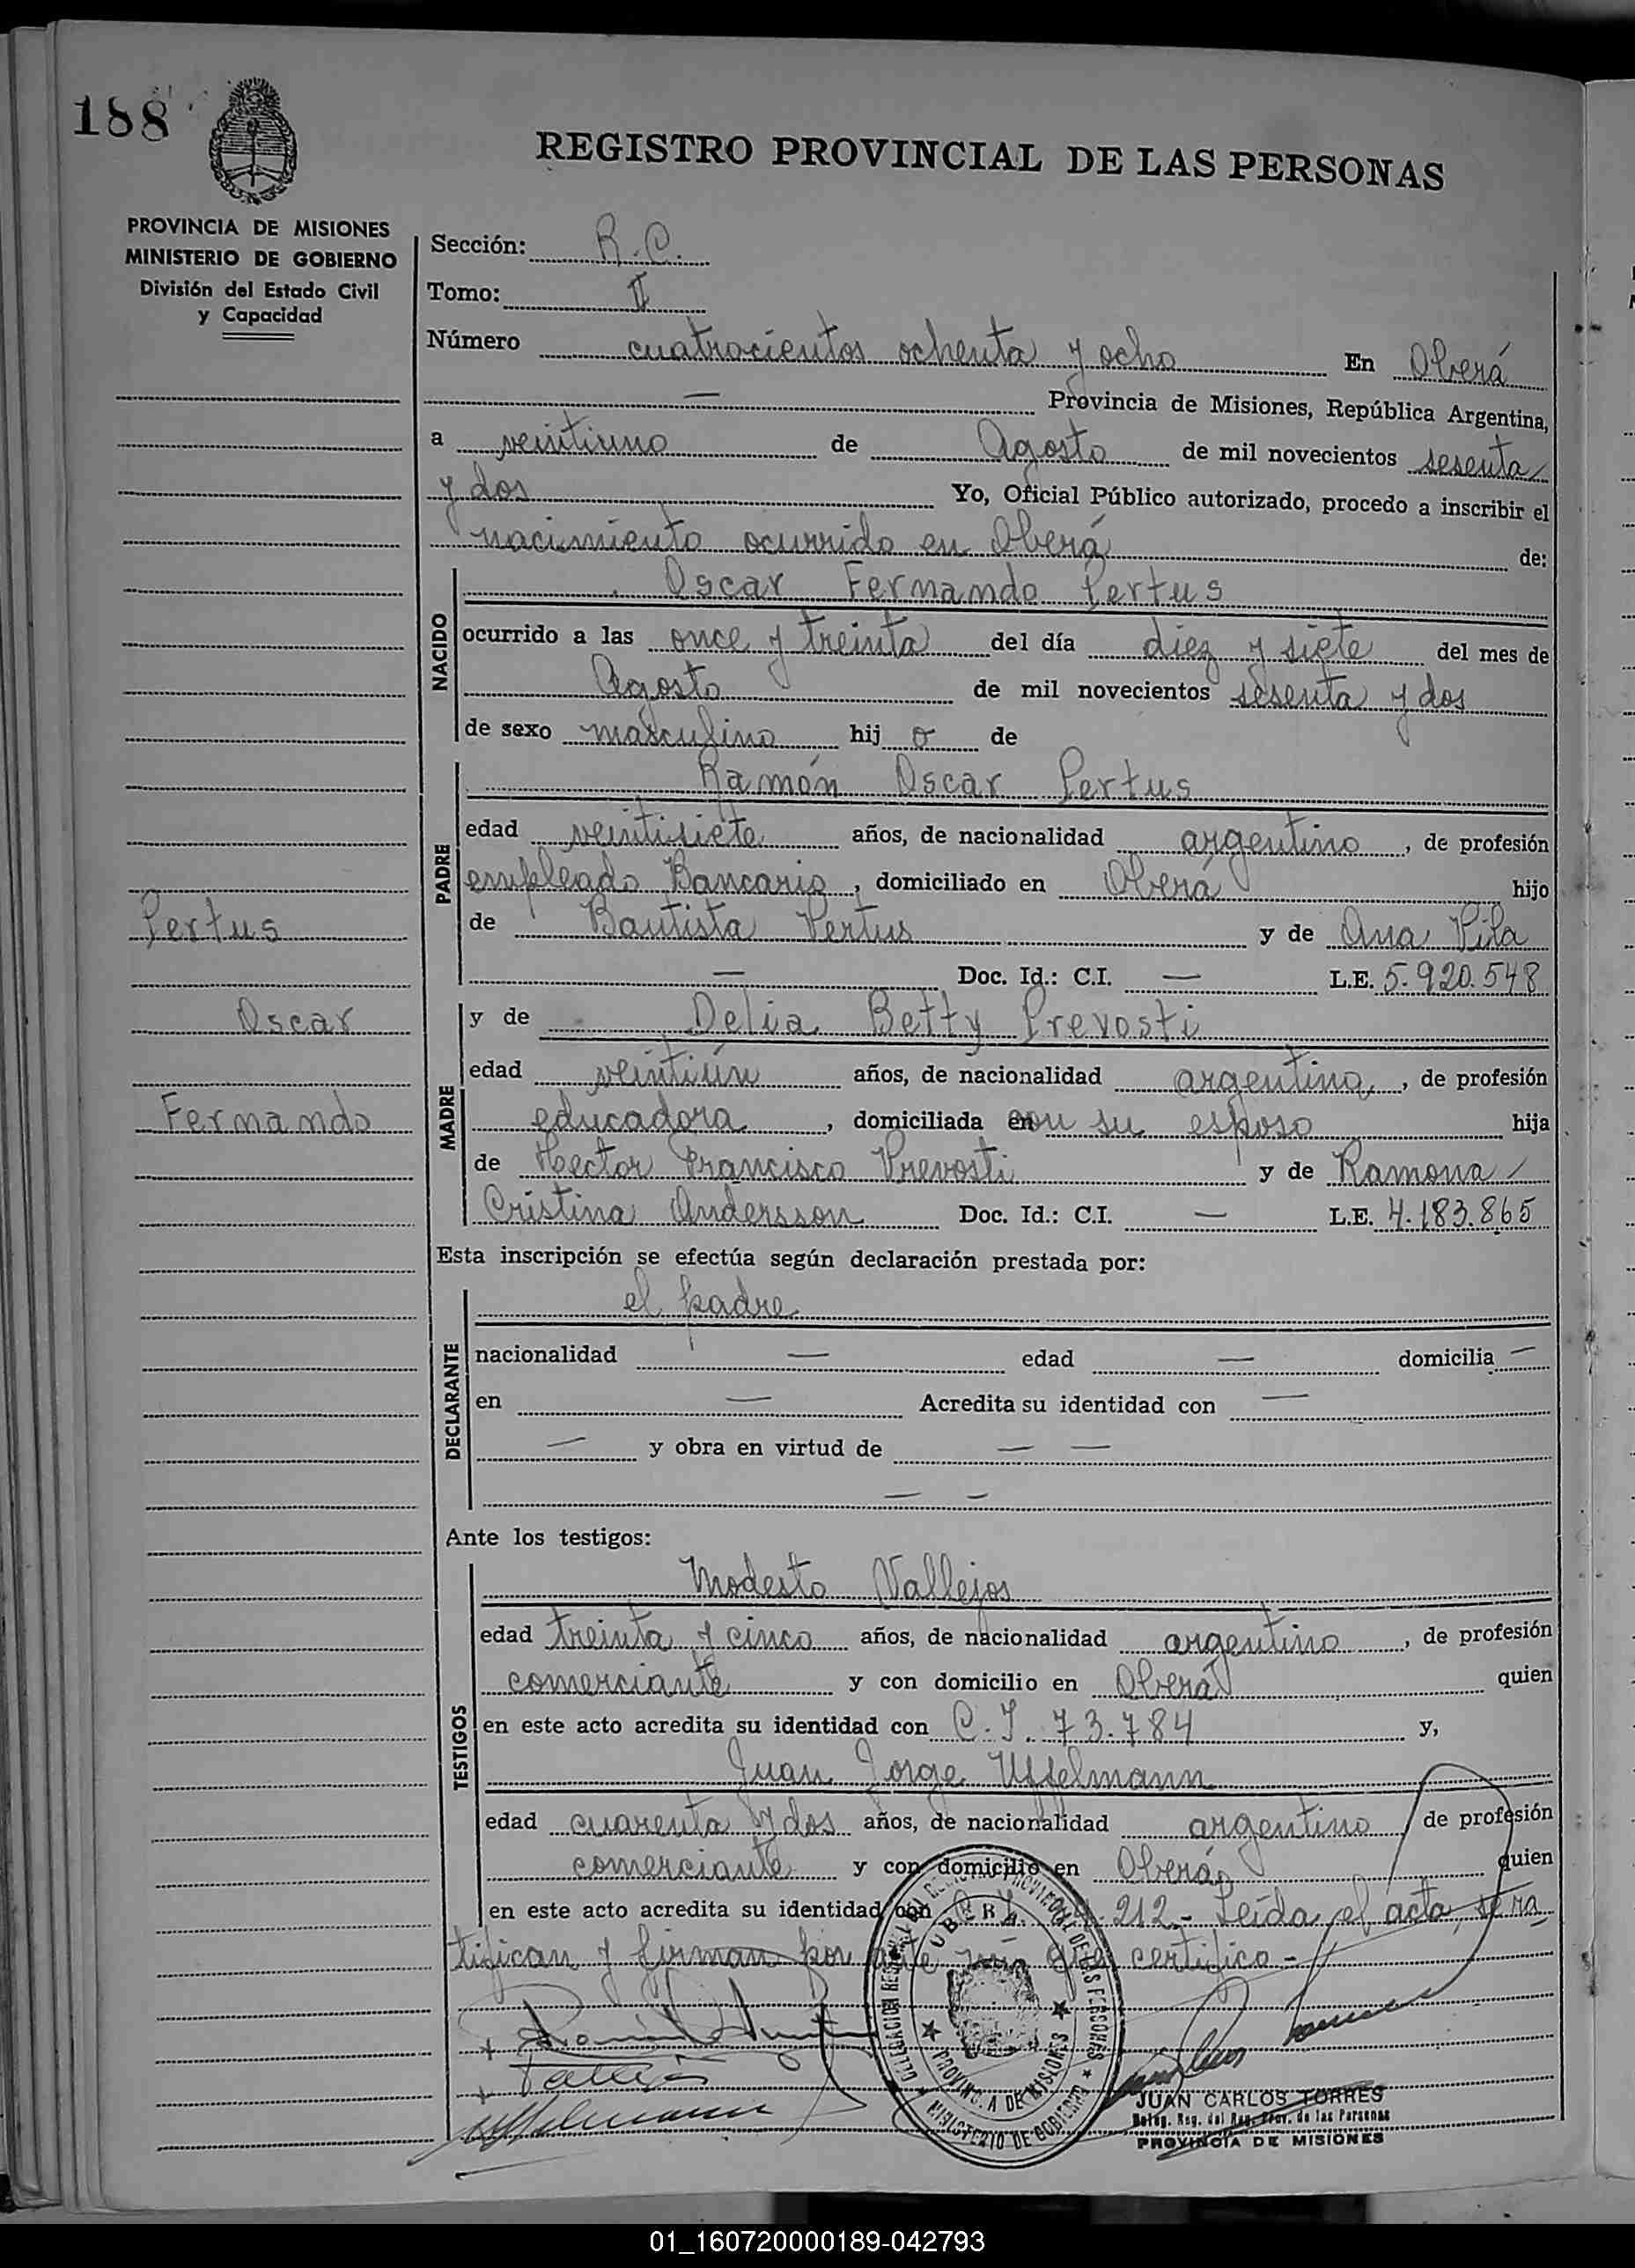 188
REGISTRO PROVINCIAL DE LAS PERSONAS
PROVINCIA DE MISIONES
MINISTERIO DE GOBIERNO
División del Estado Civil
y Capacidad
Pertus
Oscar
Fernando
Sección: R.C.
Tomo: II
Número cuatrocientos ochenta y ocho En Oberá
— Provincia de Misiones, República Argentina,
a veintiuno de Agosto de mil novecientos sesenta
y dos Yo, Oficial Público autorizado, procedo a inscribir el
nacimiento ocurrido en Oberá de:
NACIDO
Oscar Fernando Pertus
ocurrido a las once y treinta del día diez y siete del mes de
Agosto de mil novecientos sesenta y dos
de sexo masculino hijo de
PADRE
Ramón Oscar Pertus
edad veintisiete años, de nacionalidad argentino, de profesión
empleado Bancario, domiciliado en Oberá hijo
de Bautista Pertus y de Ana Pila
— Doc. Id.: C.I. — L.E. 5.920.548
MADRE
y de Delia Betty Prevosti
edad veintiún años, de nacionalidad argentina, de profesión
educadora, domiciliada con su esposo hija
de Hector Francisco Prevosti y de Ramona
Cristina Andersson Doc. Id.: C.I. — L.E. 4.183.865
Esta inscripción se efectúa según declaración prestada por:
DECLARANTE
el padre
nacionalidad — edad — domicilia —
en — Acredita su identidad con —
— y obra en virtud de — —
— —
Ante los testigos:
TESTIGOS
Modesto Vallejos
edad treinta y cinco años, de nacionalidad argentino, de profesión
comerciante y con domicilio en Oberá quien
en este acto acredita su identidad con C.I. 73.784 y,
Juan Jorge Usselmann
edad cuarenta y dos años, de nacionalidad argentino de profesión
comerciante y con domicilio en Oberá quien
en este acto acredita su identidad con 212.- Leída el acta, se ra
tifican y firman por ante mí que certifico.-
DELEGACION DEL REGISTRO PROVINCIAL DE LAS PERSONAS
OBERA
PROVINCIA DE MISIONES
MINISTERIO DE GOBIERNO
JUAN CARLOS TORRES
Deleg. Reg. del Reg. Prov. de las Personas
PROVINCIA DE MISIONES
01_160720000189-042793